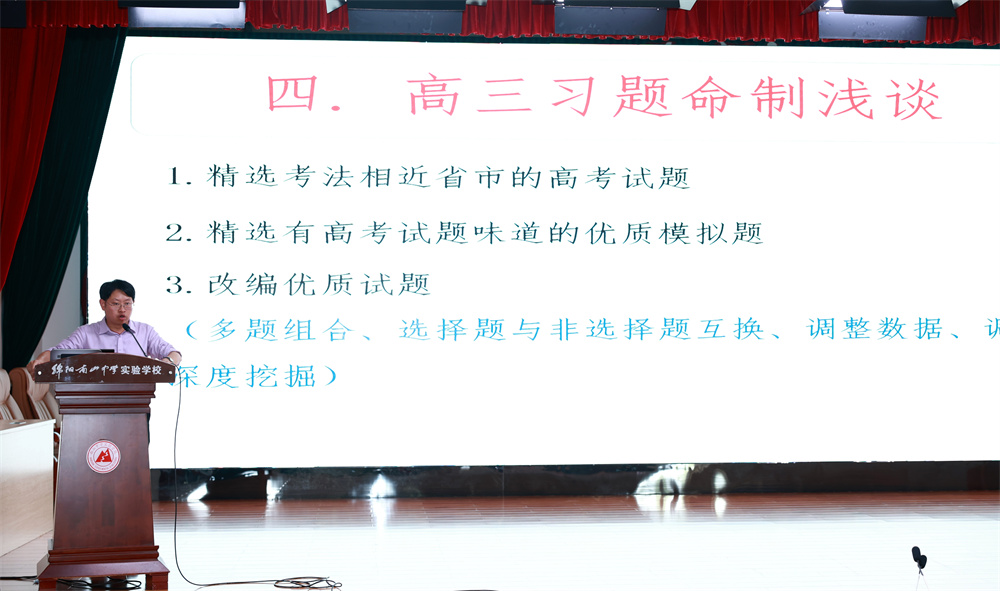 四. 高三习题命制浅谈
1. 精选考法相近省市的高考试题
2. 精选有高考试题味道的优质模拟题
3. 改编优质试题
（多题组合、选择题与非选择题互换、调整数据、调
深度挖掘）
绵阳南山中学实验学校